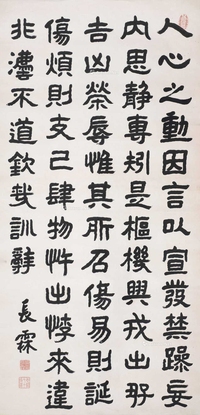 人心之動因言以宣發禁躁妄
內思静專矧是樞機興戎出好
吉凶榮辱惟其所召傷易則誕
傷煩則支己肆物忤出悖來違
非灋不道欽哉訓辭
長霖